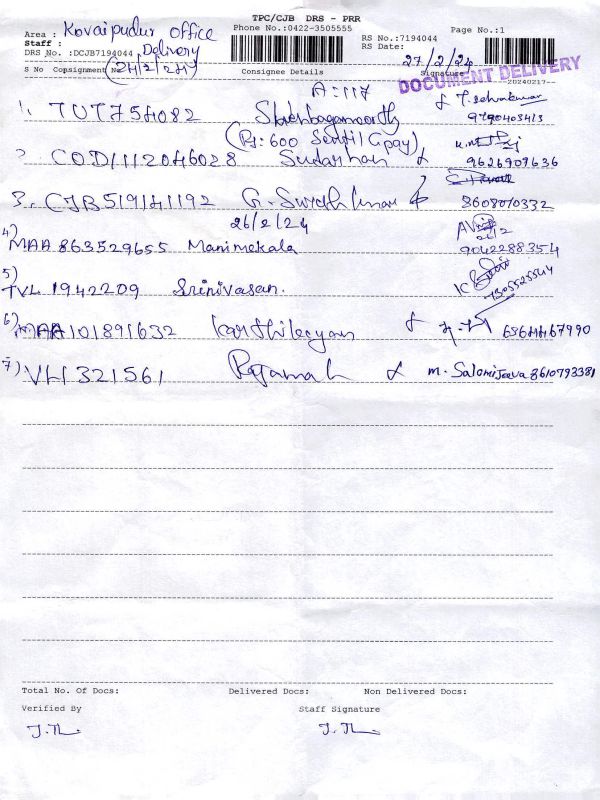 TPC/CJB DRS - PRR
Area : Kovaipudur Office
Phone No.:0422-3505555
RS No.:7194044
Page No.:1
Staff :
Delivery
RS Date:
27/2/24
DRS No. :DCJB7194044
(24/2/24)
--20240217--
S No Consignment No
Consignee Details
Signature
DOCUMENT DELIVERY
A:117
1. TUT754082
9790403413
(Rs:600 Senthil Gpay)
2 COD1112046028 Sudarshan
9626909636
3. CJB519141192 G.
8608010332
26/2/24
4) MAA 863529655 Manimekala
9042288354
5) TVL 1942209 Srinivasan.
7305525544
6) MAA101891632 Karthikeyan
6364467990
7) VLI321561 m. Salomi Jeeva 8610793381
Total No. Of Docs:
Delivered Docs:
Non Delivered Docs:
Verified By
Staff Signature